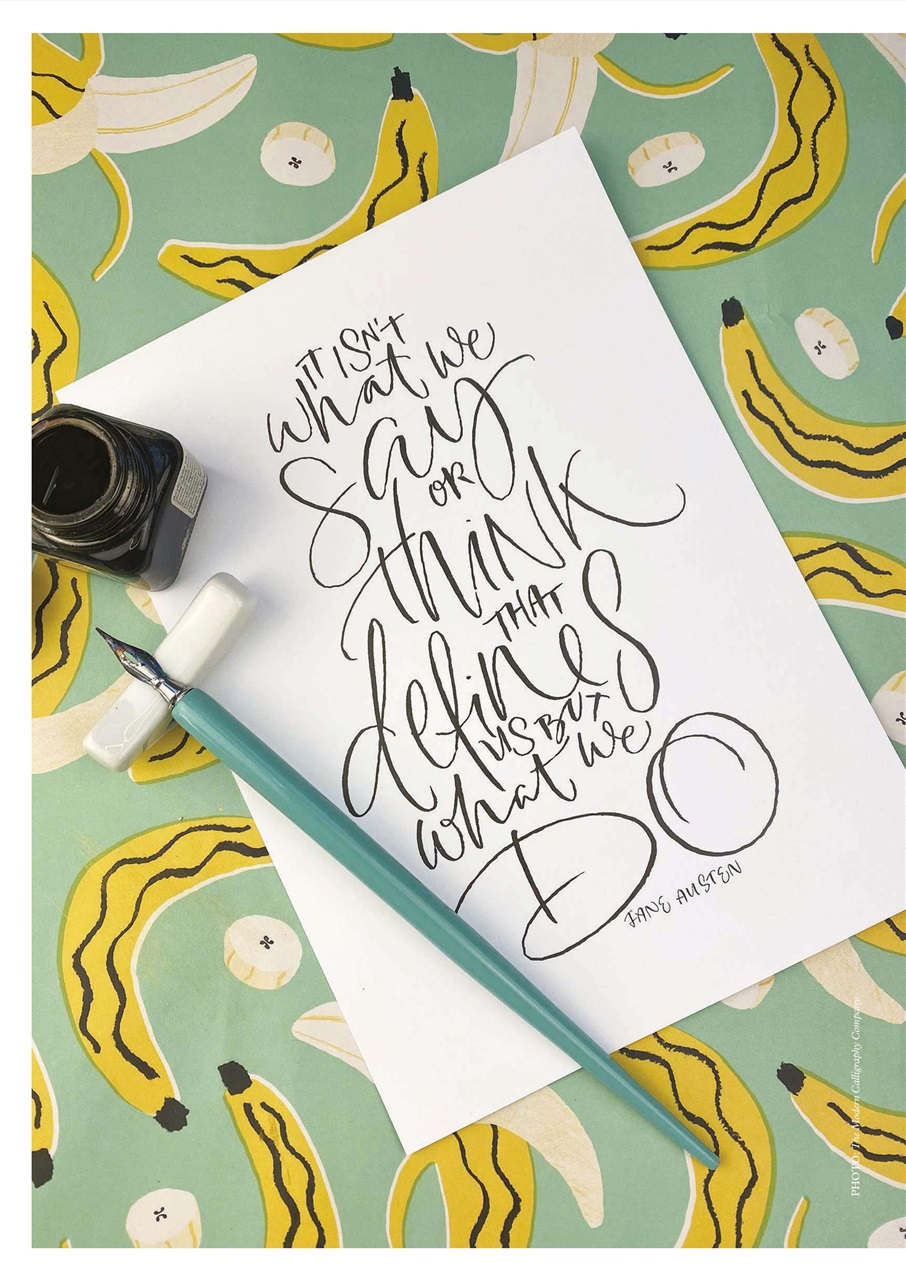 IT ISN'T
what we
say
OR
THINK
THAT
defines
US BUT
what we
DO
JANE AUSTEN
PHOTO: The Modern Calligraphy Company